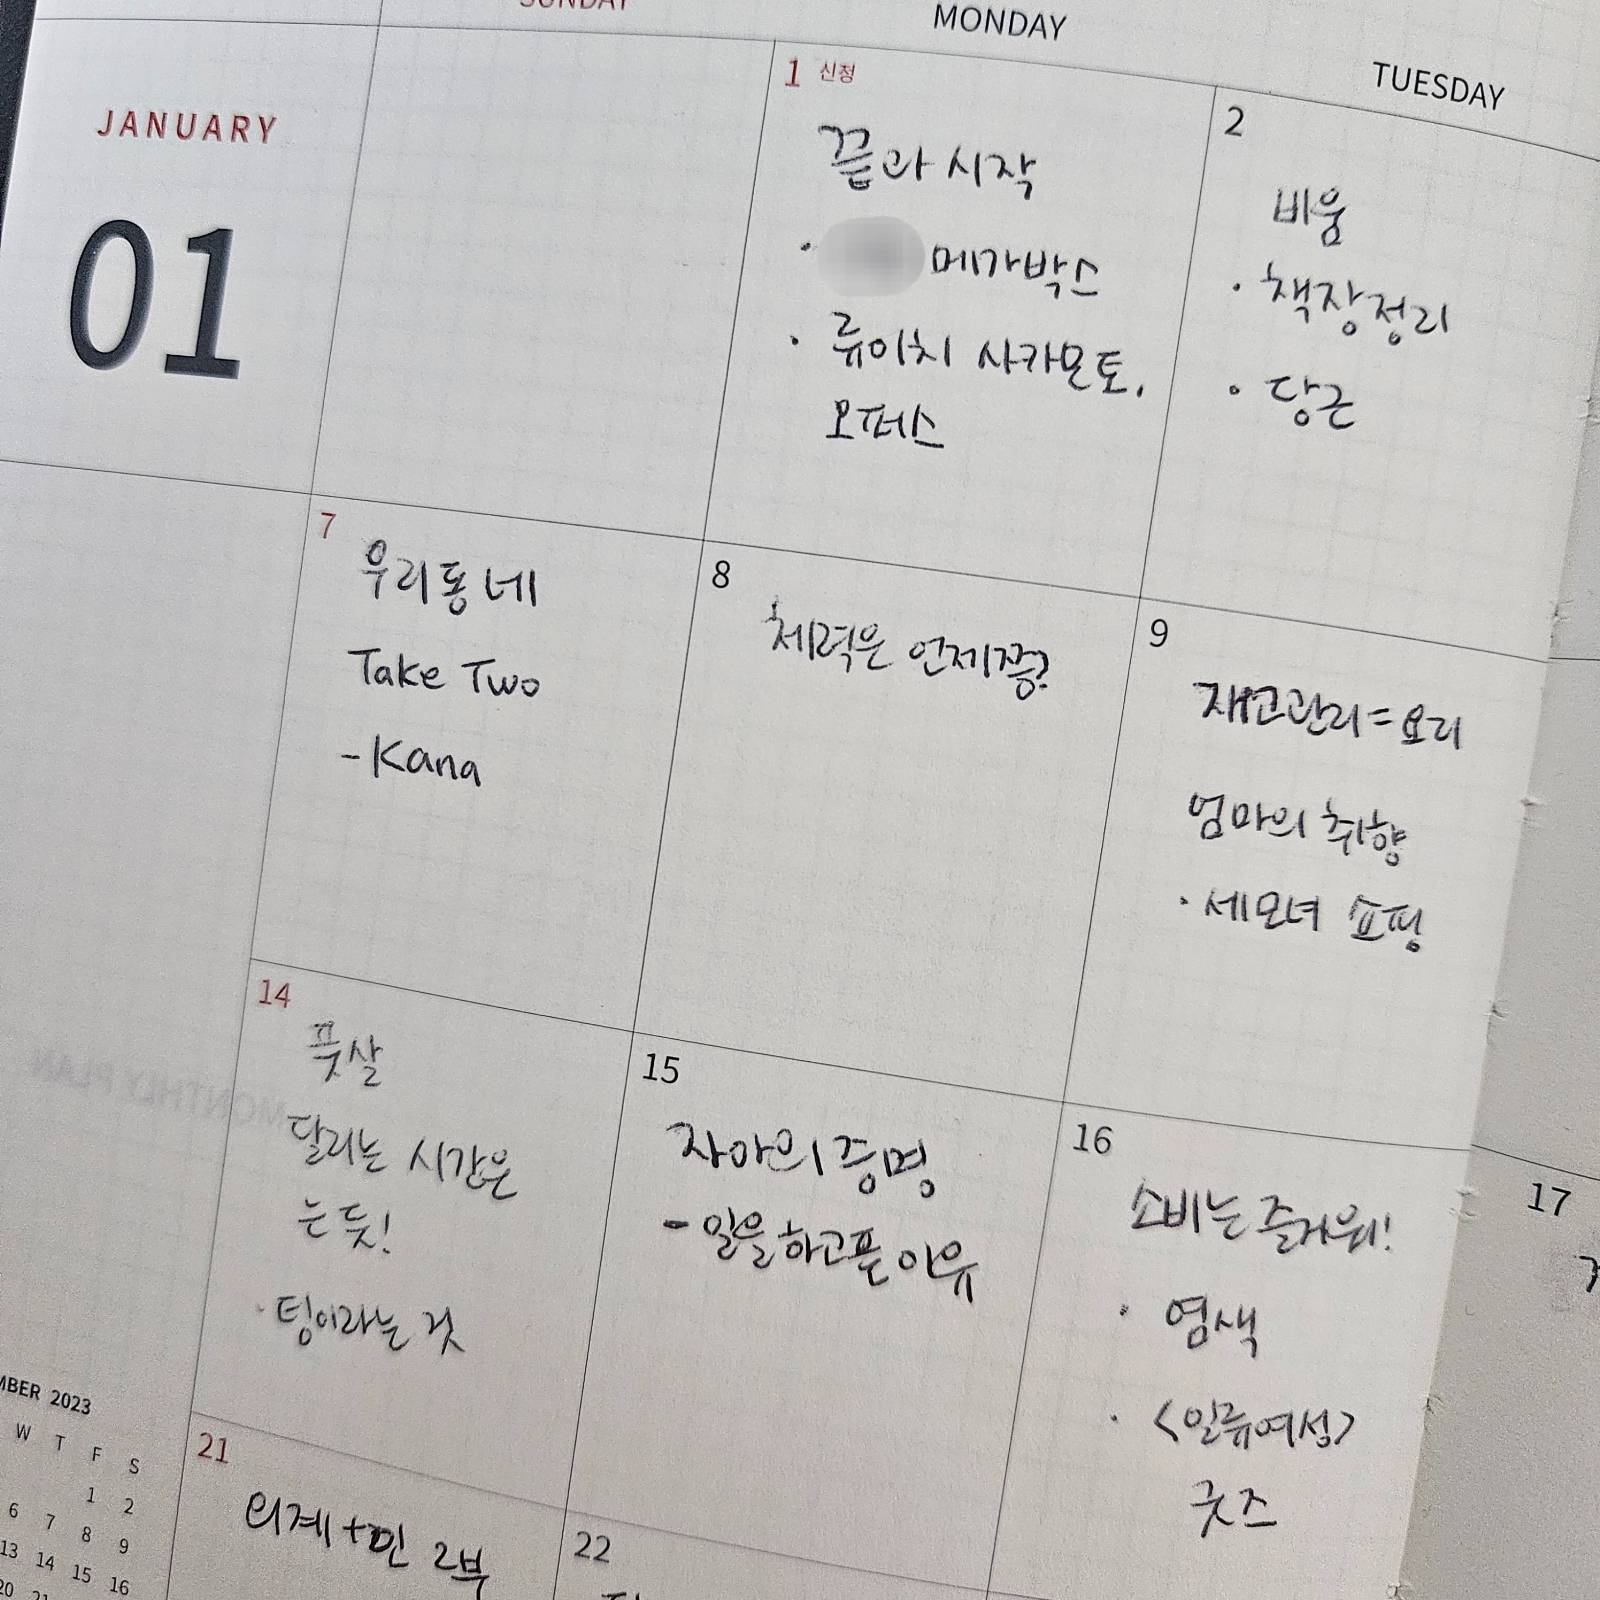 SUNDAY
MONDAY
TUESDAY
JANUARY
01
1 신정
끝과 시작
· 메가박스
· 류이치 사카모토,
오퍼스
2
비움
· 책장정리
· 당근
7
우리동네
Take Two
-Kana
8
체력은 언제쯤?
9
재고관리=요리
엄마의 취향
· 세모녀 쇼핑
14
풋살
달리는 시간은
는 듯!
· 팅이라는 것
15
자아의 증명
- 일을 하고픈 이유
16
소비는 즐거워!
· 염색
· <일류여성>
굿즈
17
21
외계+인 2부
22
MBER 2023
W T F S
1 2
6 7 8 9
13 14 15 16
20 21
MONTHLY PLAN